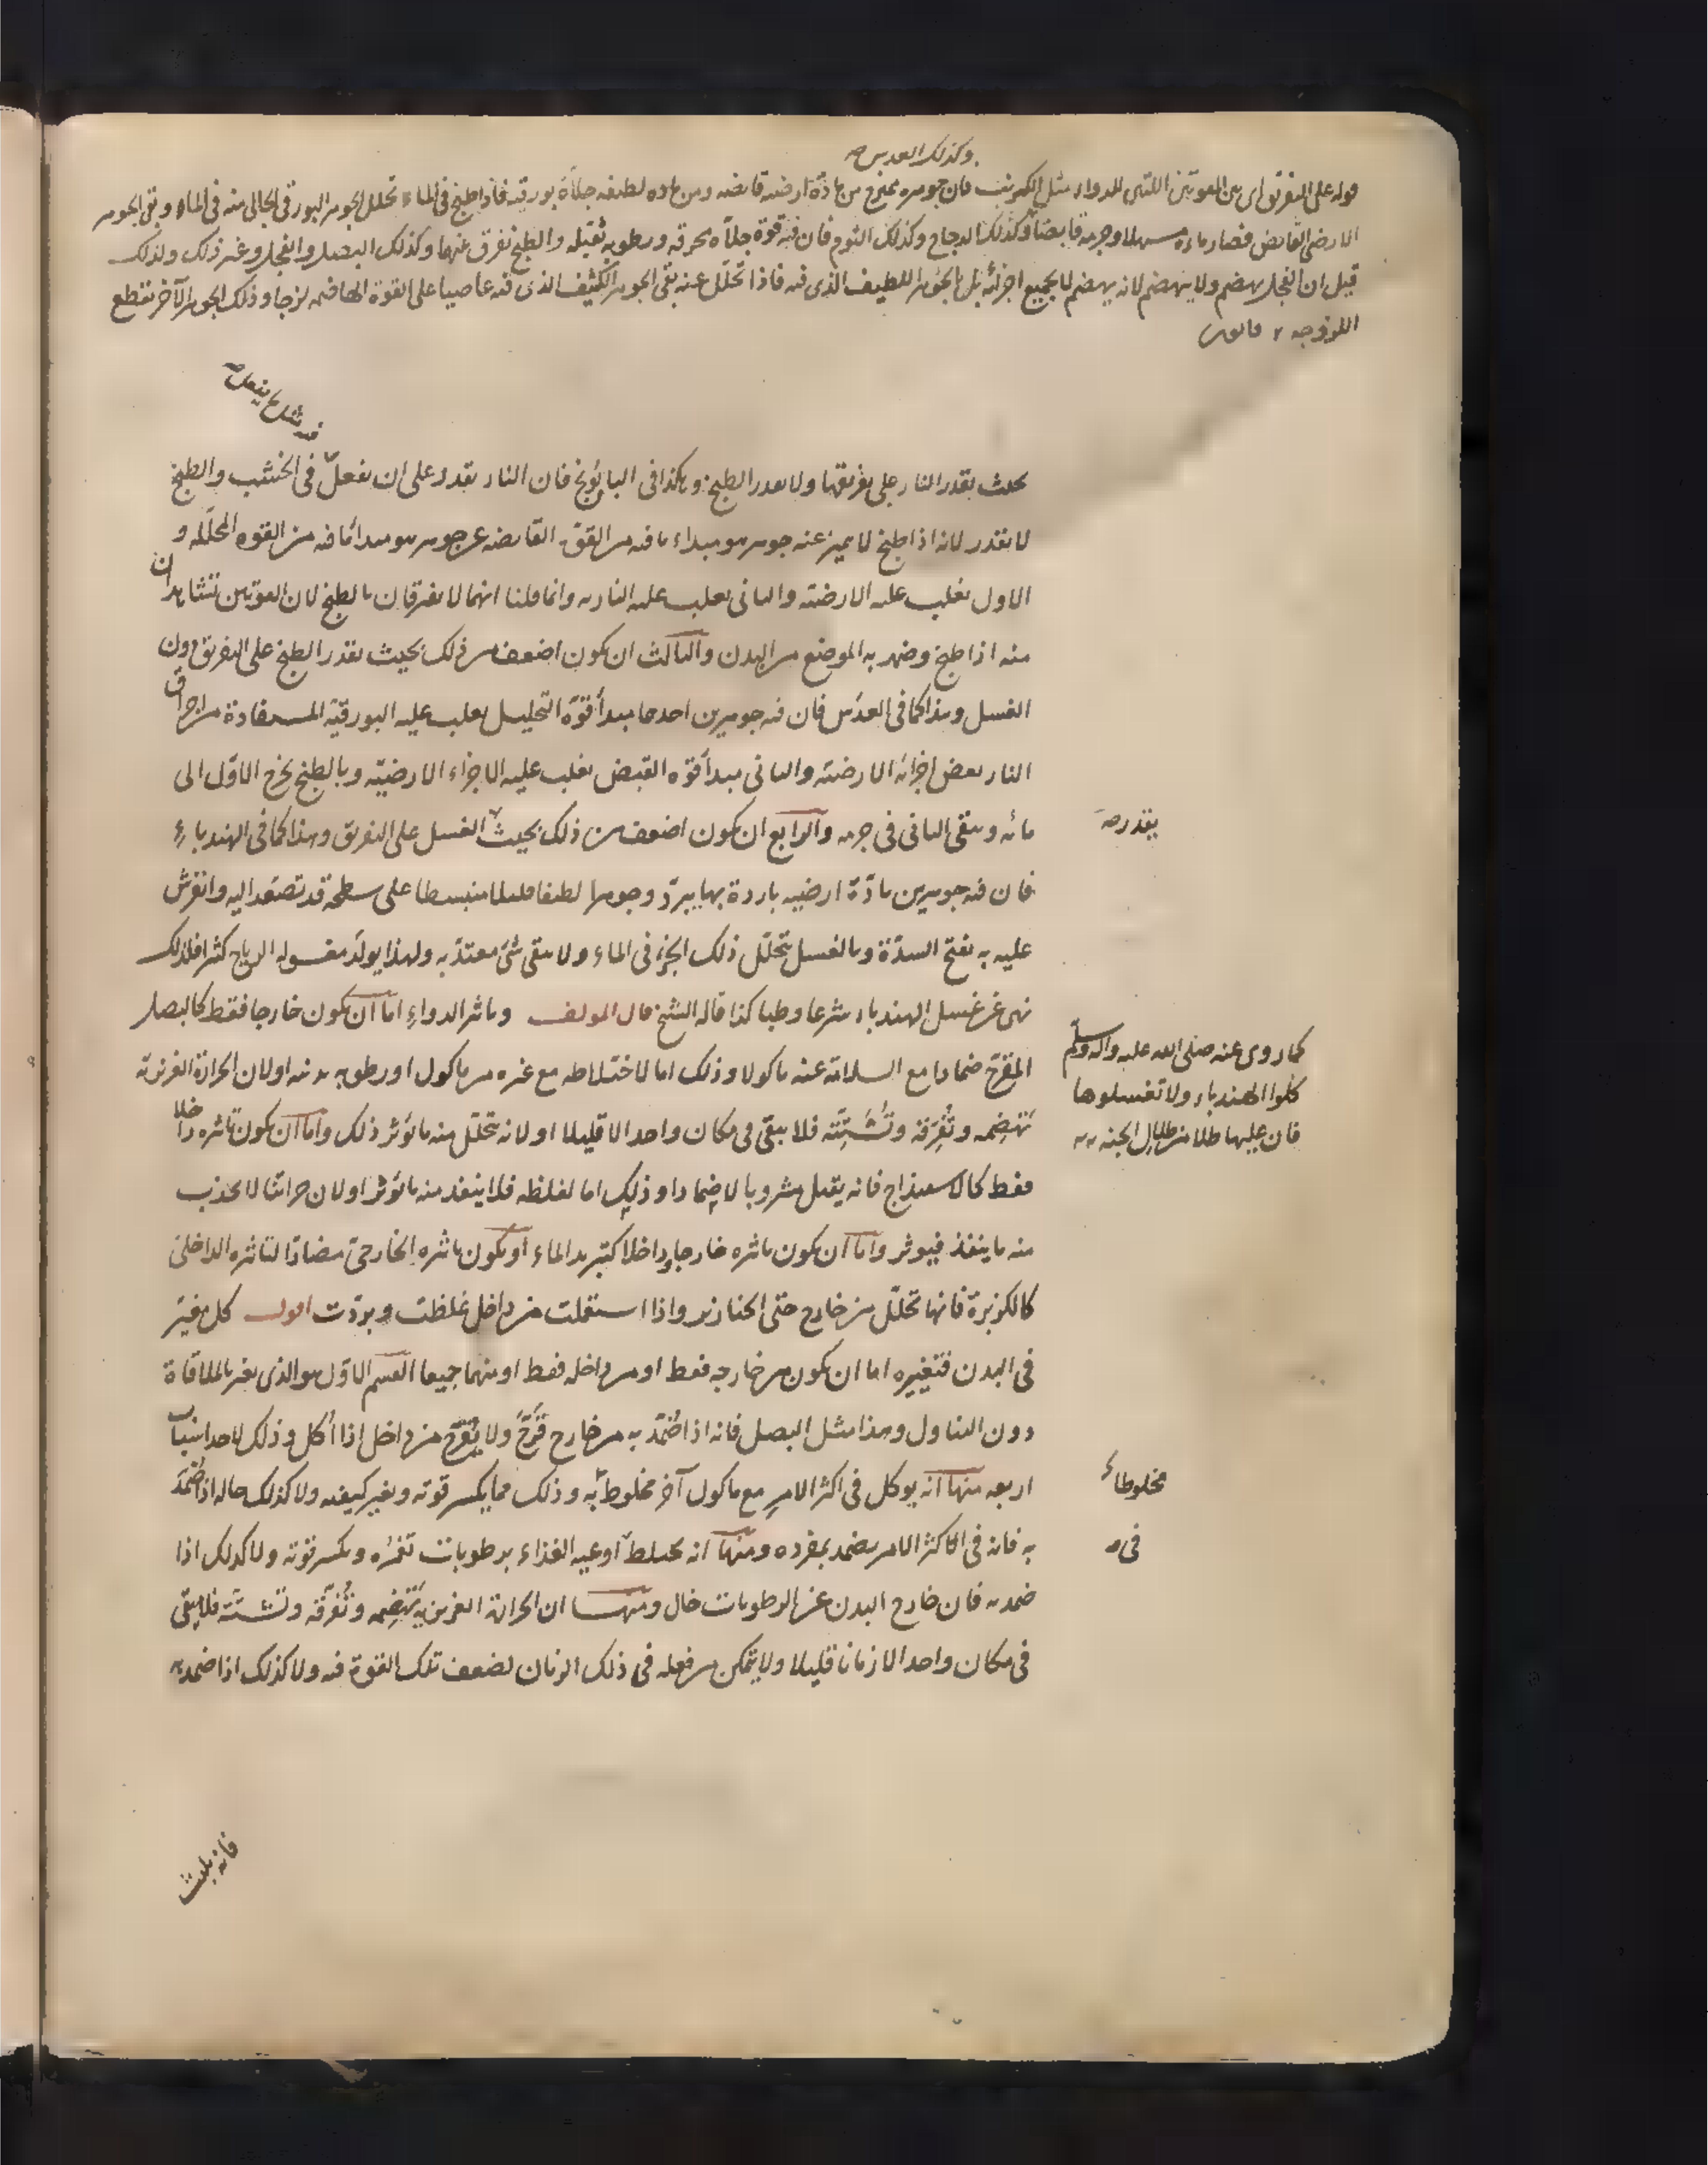 وكذلك العدس صح
قوله على التفريق اى بين القوتين اللتين للدواء مثل الكرنب فان جوهره ممتزج من مادّة ارضية قابضة ومن مادة لطيفة جلّاءة بورقية فاذا طبخ فى الماء تحلل الجوهر البورقى الجالى منه فى الماء وبقى الجوهر
الارضى القابض فصار ماءه مسهلا وجرمه قابضا وكذلك الدجاج وكذلك الثوم فان فيه قوة جلّاءة محرقة ورطوبة ثقيلة والطبخ يفرق بينهما وكذلك البصل والفجل وغير ذلك ولذلك
قيل ان الفجل يهضم ولا ينهضم لانه يهضم لا بجميع اجزائه بل بالجوهر اللطيف الذى فيه فاذا تحلّل عنه بقى الجوهر الكثيف الذى فيه عاصيا على القوة الهاضمة لزجا وذلك الجوهر الآخر يقطع
اللزوجة قانون
بحيث يقدر النار على تفريقها ولا يقدر الطبخ وهكذا فى البابونج فان النار يقدر على ان يفعل فى الخشب والطبخ
لا يقدر لانه اذا طبخ لا يميز عنه جوهر هو مبداء ما فيه من القوّة القابضة عن جوهر هو مبدا ما فيه من القوة المحلّلة و
الاول يغلب عليه الارضية والثانى يغلب عليه النارية وانما قلنا انهما لا يفترقان بالطبخ لان القوتين تشاهدان
منه اذا طبخ وضمد به الموضع من البدن والثالث ان يكون اضعف من ذلك بحيث يقدر الطبخ على التفريق دون
الغسل وهذا كما فى العدس فان فيه جوهرين احدهما مبدأ قوّة التحليل يغلب عليه البورقيّة المستفادة من احراق
النار بعض اجزائه الارضية والثانى مبدأ قوّة القبض يغلب عليه الاجزاء الارضيّة وبالطبخ يخرج الاوّل الى
مائه ويبقى الثانى فى جرمه والرابع ان يكون اضعف من ذلك بحيث الغسل على التفريق وهذا كما فى الهندباء
يقدر صح
فان فيه جوهرين مادّة ارضية باردة بها يبرّد وجوهرا لطيفا قليلا منبسطا على سطحه قد تصعّد اليه وانفرش
عليه به يفتح السدّة وبالغسل يتحلّل ذلك الجزء فى الماء ولا يبقى شئ معتدّ به ولهذا يولّد مغسوله الرياح كثيرا فلذلك
نهى عن غسل الهندباء شرعا وطبا كذا قاله الشيخ قال المولف وتاثير الدواء اما ان يكون خارجا فقط كالبصل
كما روى عنه صلى الله عليه وآله وسلم
كلوا الهندباء ولا تغسلوها
فان عليها طلا من طلال الجنة
المقرّح ضمادا مع السلامة عنه ماكولا وذلك اما لاختلاطه مع غيره من ماكول او رطوبة بدنية او لان الحرارة الغريزية
تهضمه وتفرّقه وتشتّته فلا يبقى فى مكان واحد الا قليلا او لانه يتحلّل منه ما يؤثر ذلك واما ان يكون تاثيره داخلا
فقط كالاسفيذاج فانه يقتل مشروبا لا ضمادا وذلك اما لغلظه فلا ينفذ منه ما يؤثر او لان حرارتنا لا تجذب
منه ما ينفذ فيوثر واما ان يكون تاثيره خارجا وداخلا كتبريد الماء او يكون تاثيره الخارجى مضادّا لتاثيره الداخلى
كالكزبرة فانها تحلّل من خارج حتى الخنازير واذا استعملت من داخل غلظت وبرّدت اقول كل مغيّر
فى البدن فتغييره اما ان يكون من خارجه فقط او من داخله فقط او منهما جميعا القسم الاوّل هو الذى يغير بالملاقاة
دون التناول وهذا مثل البصل فانه اذا ضمّد به من خارج قرّح ولا يقرّح من داخل اذا اكل وذلك لاحد اسباب
اربعة منها انه يوكل فى اكثر الامر مع ماكول آخر مخلوط به وذلك مما يكسر قوته ويغير كيفيته ولا كذلك حاله اذا ضمّد
مخلوطا
به فانه فى الاكثر الامر يضمد بمفرده ومنها انه يختلط اوعية الغذاء برطوبات تغمره وتكسر قوته ولا كذلك اذا
فى صح
ضمد به فان خارج البدن عن الرطوبات خال ومنها ان الحرارة الغريزية تهضمه وتفرّقه وتشتّته فلا يبقى
فى مكان واحد الا زمانا قليلا ولا يتمكن من فعله فى ذلك الزمان لضعف تلك القوة فيه ولا كذلك اذا ضمد به
فانه يلبث